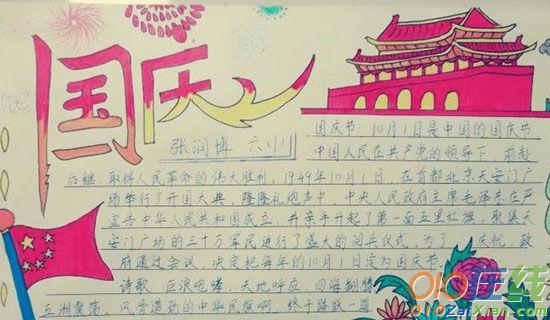 国庆
张润博 六(1)
国庆节，10月1日是中国的国庆节，
中国人民在共产党的领导下，前赴
后继，取得人民革命的伟大胜利，1949年10月1日，在首都北京天安门广
场举行了开国大典，隆隆礼炮声中，中央人民政府主席毛泽东庄严
宣告中华人民共和国成立，并亲手升起了第一面五星红旗，聚集天
安门广场的三十万军民进行了盛大的阅兵仪式，为了 庆祝，政
府通过会议，决定把每年的10月1日定为国庆节。
诗歌 巨浪咆哮，天地呼应，四海翻腾
五洲震荡，风雪造勃的中华民族啊，终于踏跃一
在线
ZaiXian.com